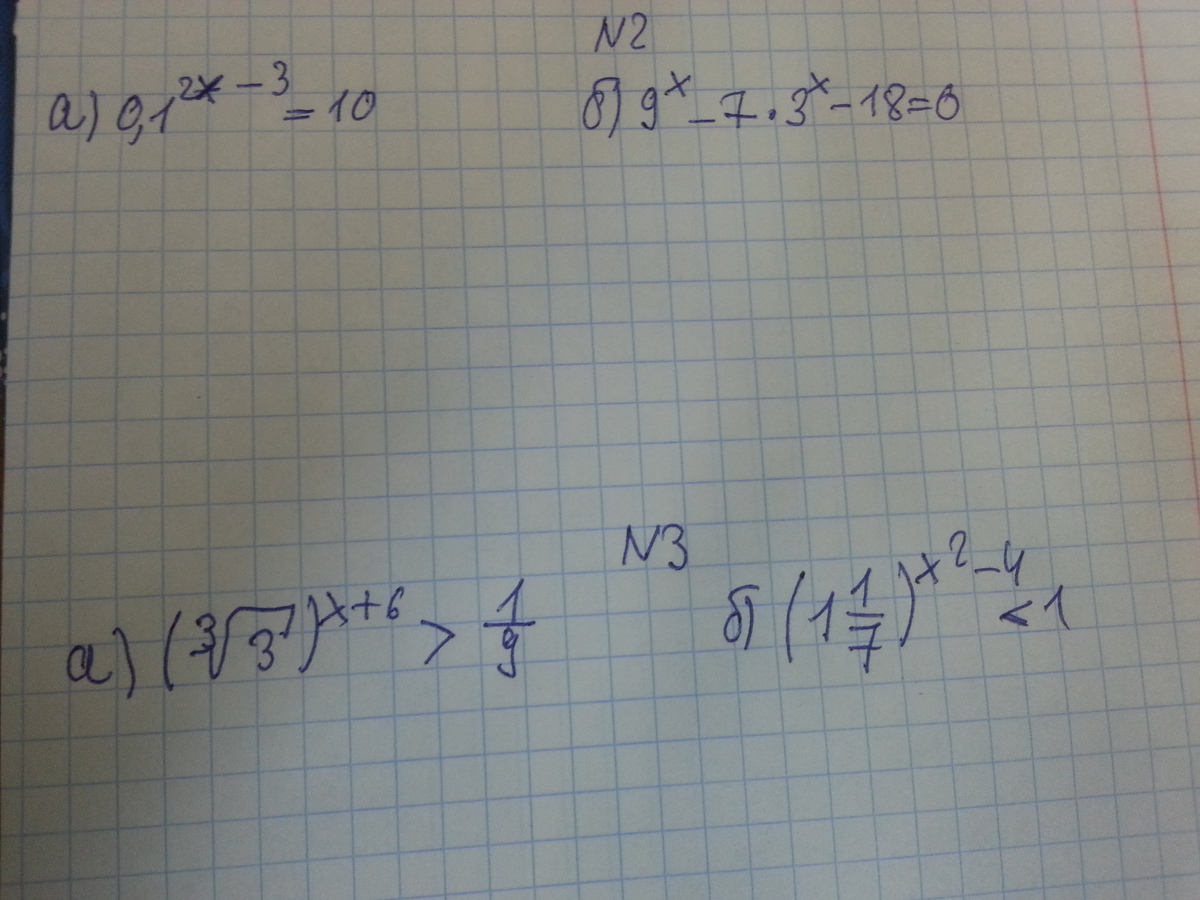 N2
а) 0,1^{2x-3} = 10 б) 9^x - 7 · 3^x - 18 = 0
N3
а) (∛3)^{x+6} > 1/9 б) (1 1/7)^{x^2-4} < 1